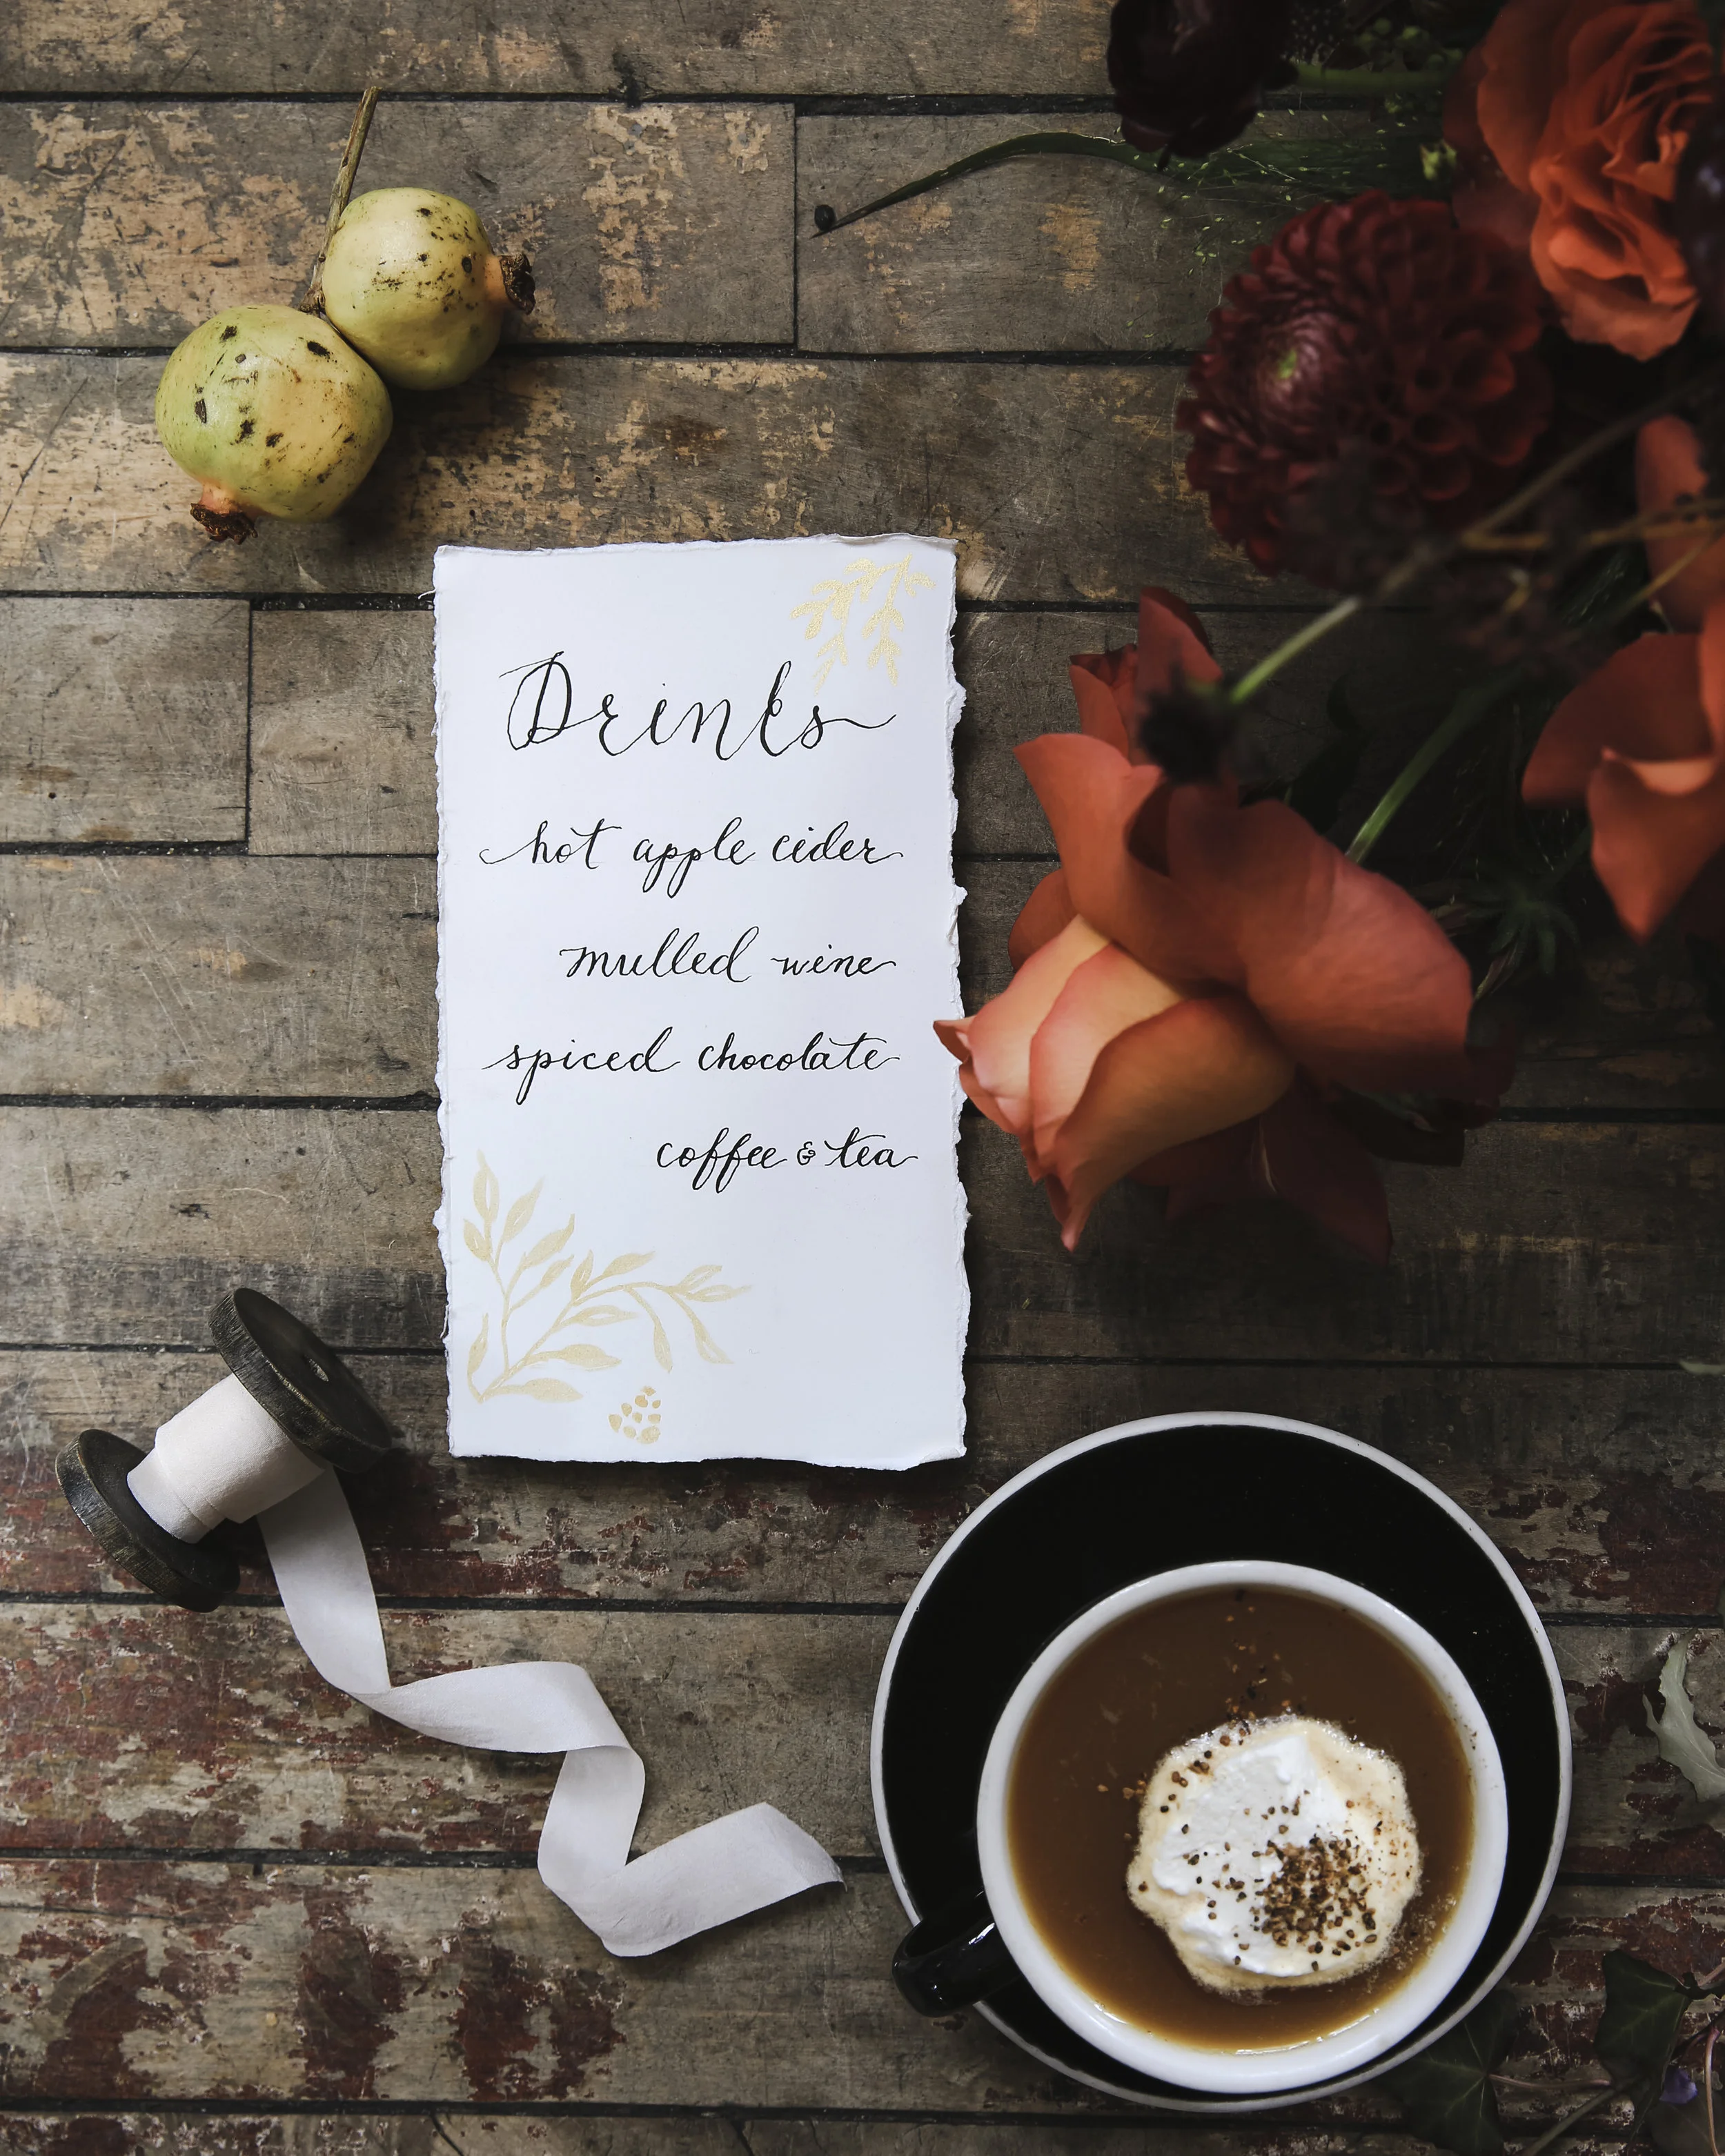 Drinks
hot apple cider
mulled wine
spiced chocolate
coffee & tea